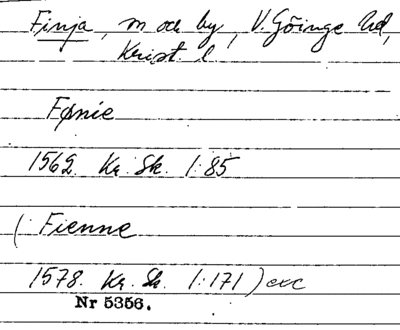 Finja, sn och by, V. Göinge hd,
Krist. l
Fønie
1562. Kr. Sk. 1:85
( Fienne
1578. Kr. Sk. 1:171 ) exc
Nr 5356.